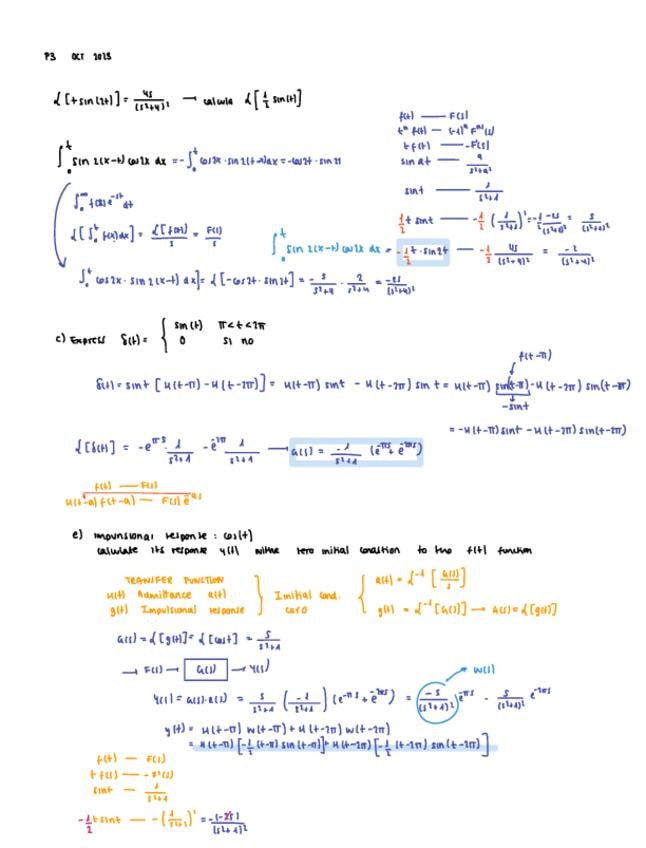 P3 OCT 2018
L[t sin(2t)] = 4s/(s²+4)² → calcula L[1/2 sin(t)]
∫₀ᵗ sin 2(x-t) cos 2x dx = -∫₀ᵗ cos 2x · sin 2(t-x)dx = -cos 2t · sin 2t
∫₀^∞ f(t)e^-st dt
L[∫₀ᵗ f(x)dx] = L[f(t)]/s = F(s)/s
∫₀ᵗ cos 2x · sin 2(x-t) dx] = L[-cos 2t · sin 2t] = -s/(s²+4) · 2/(s²+4) = -2s/(s²+4)²
f(t) — F(s)
tⁿ f(t) — (-1)ⁿ Fⁿ(s)
t f(t) — -F'(s)
sin at — a/(s²+a²)
sin t — 1/(s²+1)
1/2 t sin t — -1/2 (1/(s²+1))' = -1/2 -2s/(s²+1)² = s/(s²+1)²
∫₀ᵗ sin 2(x-t) cos 2x dx = -1/2 t · sin 2t — -1/2 4s/(s²+4)² = -2/(s²+4)²
c) Express δ(t) = { sin(t) π<t<2π
0 si no
f(t-π)
δ(t) = sin t [u(t-π) - u(t-2π)] = u(t-π) sin t - u(t-2π) sin t = u(t-π) sin(t-π) - u(t-2π) sin(t-π)
-sin t
= -u(t-π) sin t - u(t-2π) sin(t-2π)
L[δ(t)] = -e^-πs 1/(s²+1) - e^-2π 1/(s²+1) → G(s) = -1/(s²+1) (e^-πs + e^-2πs)
f(t) — F(s)
u(t-a) f(t-a) — F(s) e^-as
e) impulsional response : cos(t)
calculate its response y(t) with zero initial condition to the f(t) function
TRANSFER FUNCTION
u(t) Admittance a(t)
g(t) Impulsional response
Inicial cond. cero
a(t) = L⁻¹[G(s)/s]
g(t) = L⁻¹[G(s)] → G(s) = L[g(t)]
G(s) = L[g(t)] = L[cos t] = s/(s²+1)
→ F(s) → G(s) → Y(s)
W(s)
Y(s) = G(s)·R(s) = s/(s²+1) (-1/(s²+1)) (e^-πs + e^-2πs) = -s/(s²+1)² e^-πs - s/(s²+1)² e^-2πs
y(t) = u(t-π) w(t-π) + u(t-2π) w(t-2π)
= u(t-π) [-1/2 (t-π) sin(t-π)] + u(t-2π) [-1/2 (t-2π) sin(t-2π)]
f(t) — F(s)
t f(s) — -F'(s)
sin t — 1/(s²+1)
-1/2 t sin t — -(1/(s²+1))' = -(-2s)/(s²+1)²